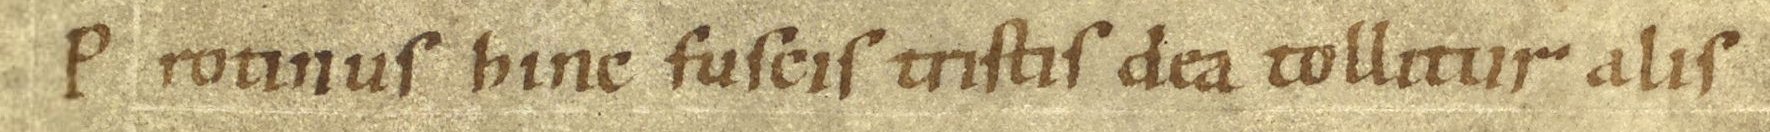 Protinus hinc fuscis tristis dea tollitur alis